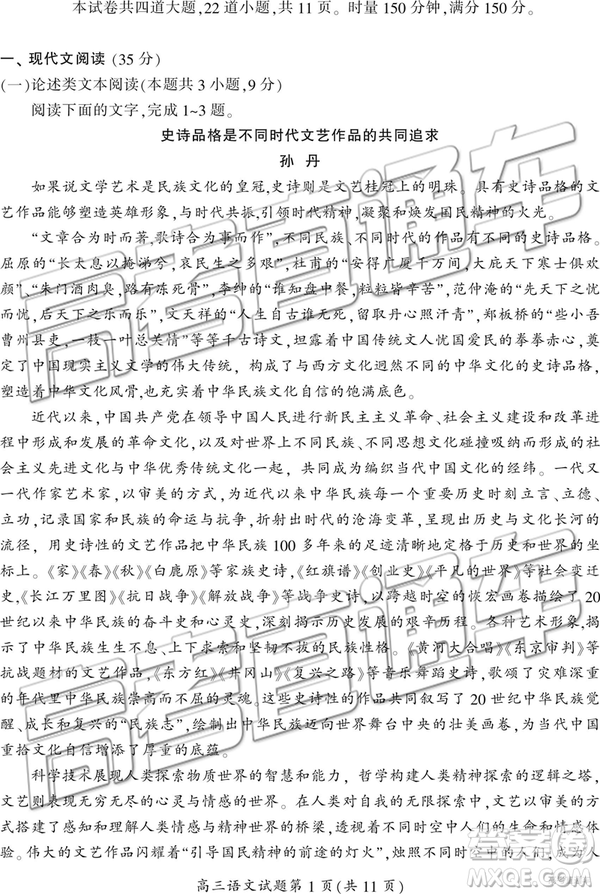 本试卷共四道大题,22道小题,共11页。时量150分钟,满分150分。
一、现代文阅读(35分)
(一)论述类文本阅读(本题共3小题,9分)
阅读下面的文字,完成1~3题。
史诗品格是不同时代文艺作品的共同追求
孙 丹
如果说文学艺术是民族文化的皇冠,史诗则是文艺桂冠上的明珠。具有史诗品格的文
艺作品能够塑造英雄形象,与时代共振,引领时代精神,凝聚和焕发国民精神的火光。
“文章合为时而著,歌诗合为事而作”,不同民族、不同时代的作品有不同的史诗品格。
屈原的“长太息以掩涕兮,哀民生之多艰”,杜甫的“安得广厦千万间,大庇天下寒士俱欢
颜”,“朱门酒肉臭,路有冻死骨”,李绅的“谁知盘中餐,粒粒皆辛苦”,范仲淹的“先天下之忧
而忧,后天下之乐而乐”,文天祥的“人生自古谁无死,留取丹心照汗青”,郑板桥的“些小吾
曹州县吏,一枝一叶总关情”等等千古诗文,坦露着中国文人忧国爱民的拳拳赤心,奠
定了中国现实主义文学的伟大传统,构成了与西方文化迥然不同的中华文化的史诗品格,
塑造着中华文化风骨,也充实着中华民族文化自信的饱满底色。
近代以来,中国共产党在领导中国人民进行新民主主义革命、社会主义建设和改革进
程中形成和发展的革命文化,以及对世界上不同民族、不同思想文化碰撞吸纳而形成的社
会主义先进文化与中华优秀传统文化一起,共同成为编织当代中国文化的经纬。一代又
一代作家艺术家,以审美的方式,为近代以来中华民族每一个重要历史时刻立言、立德、
立功,记录国家和民族的命运与抗争,折射出时代的沧海变革,呈现出历史与文化长河的
流径,用史诗性的文艺作品把中华民族100多年来的足迹清晰地定格于历史和世界的坐
标上。《家》《春》《秋》《白鹿原》等家族史诗,《红旗谱》《创业史》《平凡的世界》等社会变迁
史,《长江万里图》《抗日战争》《解放战争》等战争史诗,以跨越时空的恢宏画卷描绘了20
世纪以来中华民族的奋斗史和心灵史,深刻揭示了历史发展的规律。各种艺术形象,揭
示了中华民族生生不息、上下求索和坚韧不拔的民族性格。《黄河大合唱》《东京审判》等
抗战题材的文艺作品,《东方红》《井冈山》《复兴之路》等音乐舞蹈史诗,歌颂了灾难深重
的年代里中华民族崇高而不屈的灵魂。这些史诗性的作品共同叙写了20世纪中华民族觉
醒、成长和复兴的“民族志”,绘制出中华民族迈向世界舞台中央的壮美画卷,为当代中国
重拾文化自信增添了厚重的底蕴。
科学技术展现人类探索物质世界的智慧和能力,哲学构建人类精神探索的逻辑之塔,
文艺则表现无穷无尽的心灵与情感的世界。在人类对自我的无限探索中,文艺以审美的方
式搭建了感知和理解人类情感与精神世界的桥梁,透视着不同时空中人们的生命状态和情感
体验。伟大的文艺作品闪耀着“引导国民精神的前途的灯火”,烛照不同时空中人
高三语文试题第1页(共11页)
高考直通车